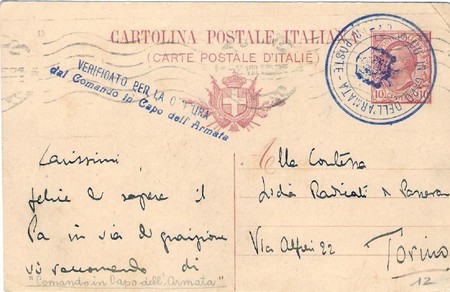 CARTOLINA POSTALE ITALIANA
(CARTE POSTALE D'ITALIE)
VERIFICATO PER LA CENSURA
dal Comando in Capo dell'Armata
DELL'ARMATA
POSTE
10 10
Carissimi,
felice di sapere il
Pa in via di guarigione
vi raccomando di
Alla Contessa
Lidia Radicati di
Via Alfieri 22
Torino
"Comando in Capo dell'Armata"
12